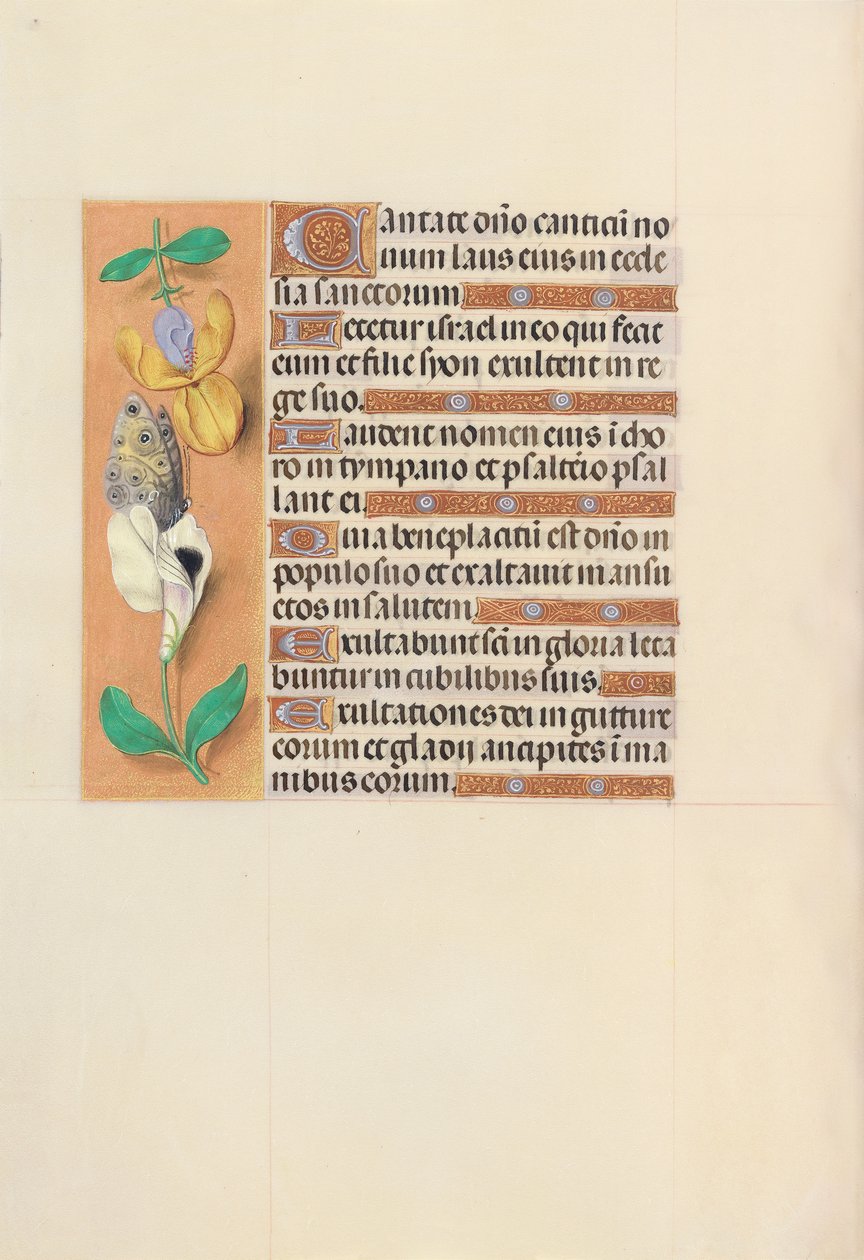 Cantate dn̄o canticū no
uum laus eius in eccle
sia sanctorum.
Letetur israel in eo qui fecit
eum et filie syon exultent in re
ge suo.
Laudent nomen eius ī cho
ro in tympano et psalterio psal
lant ei.
Quia beneplacitū est dn̄o in
populo suo et exaltauit mansu
etos in salutem.
Exultabunt sc̄i in gloria leta
buntur in cubilibus suis.
Exultationes dei in gutture
eorum et gladij ancipites ī ma
nibus eorum.